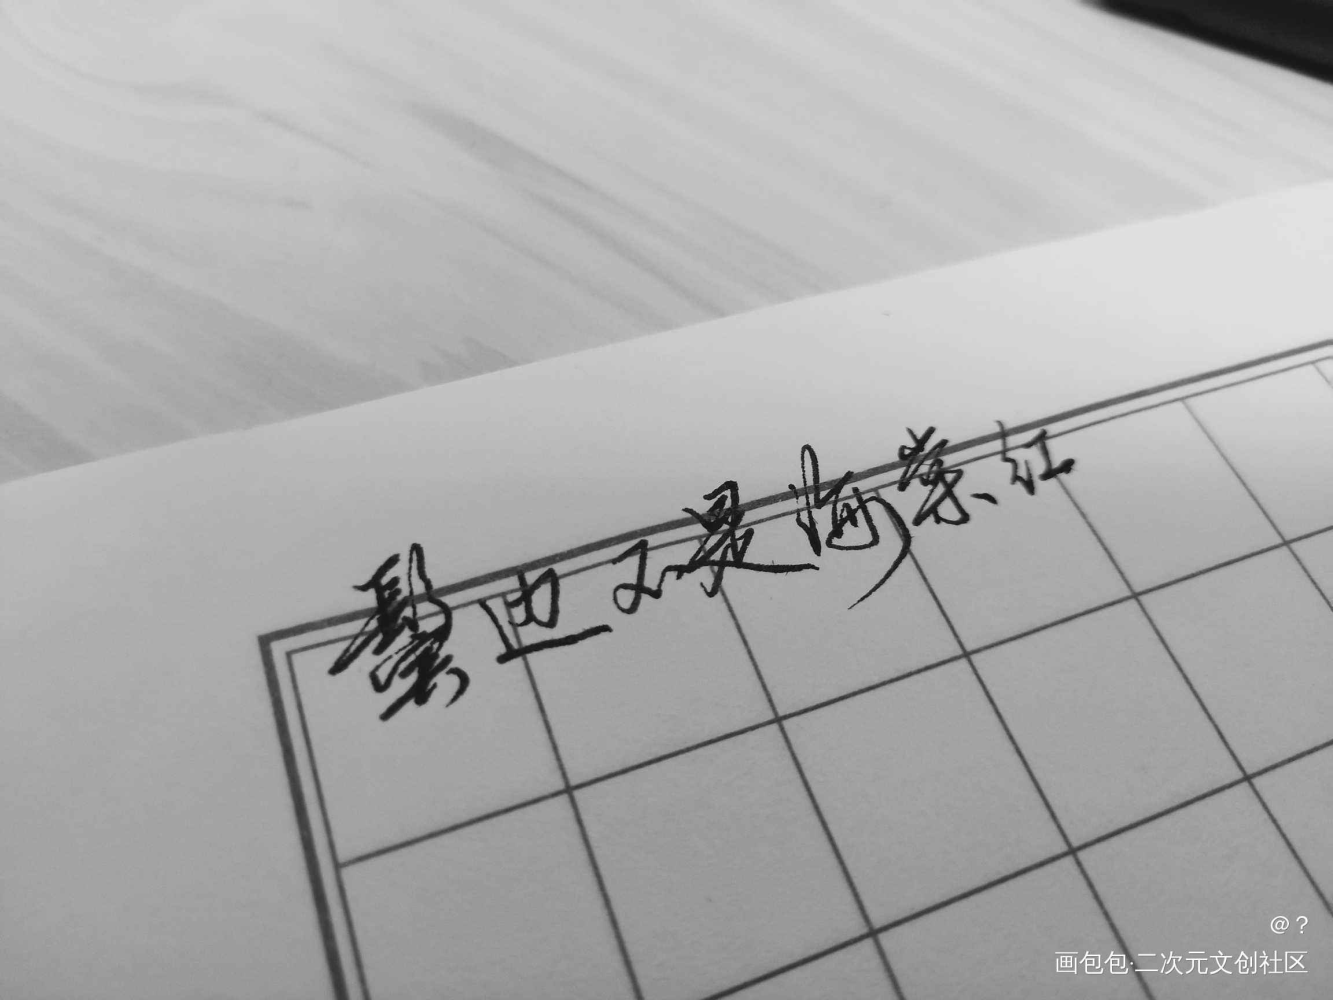 鬓边不是海棠红
@？
画包包·二次元文创社区